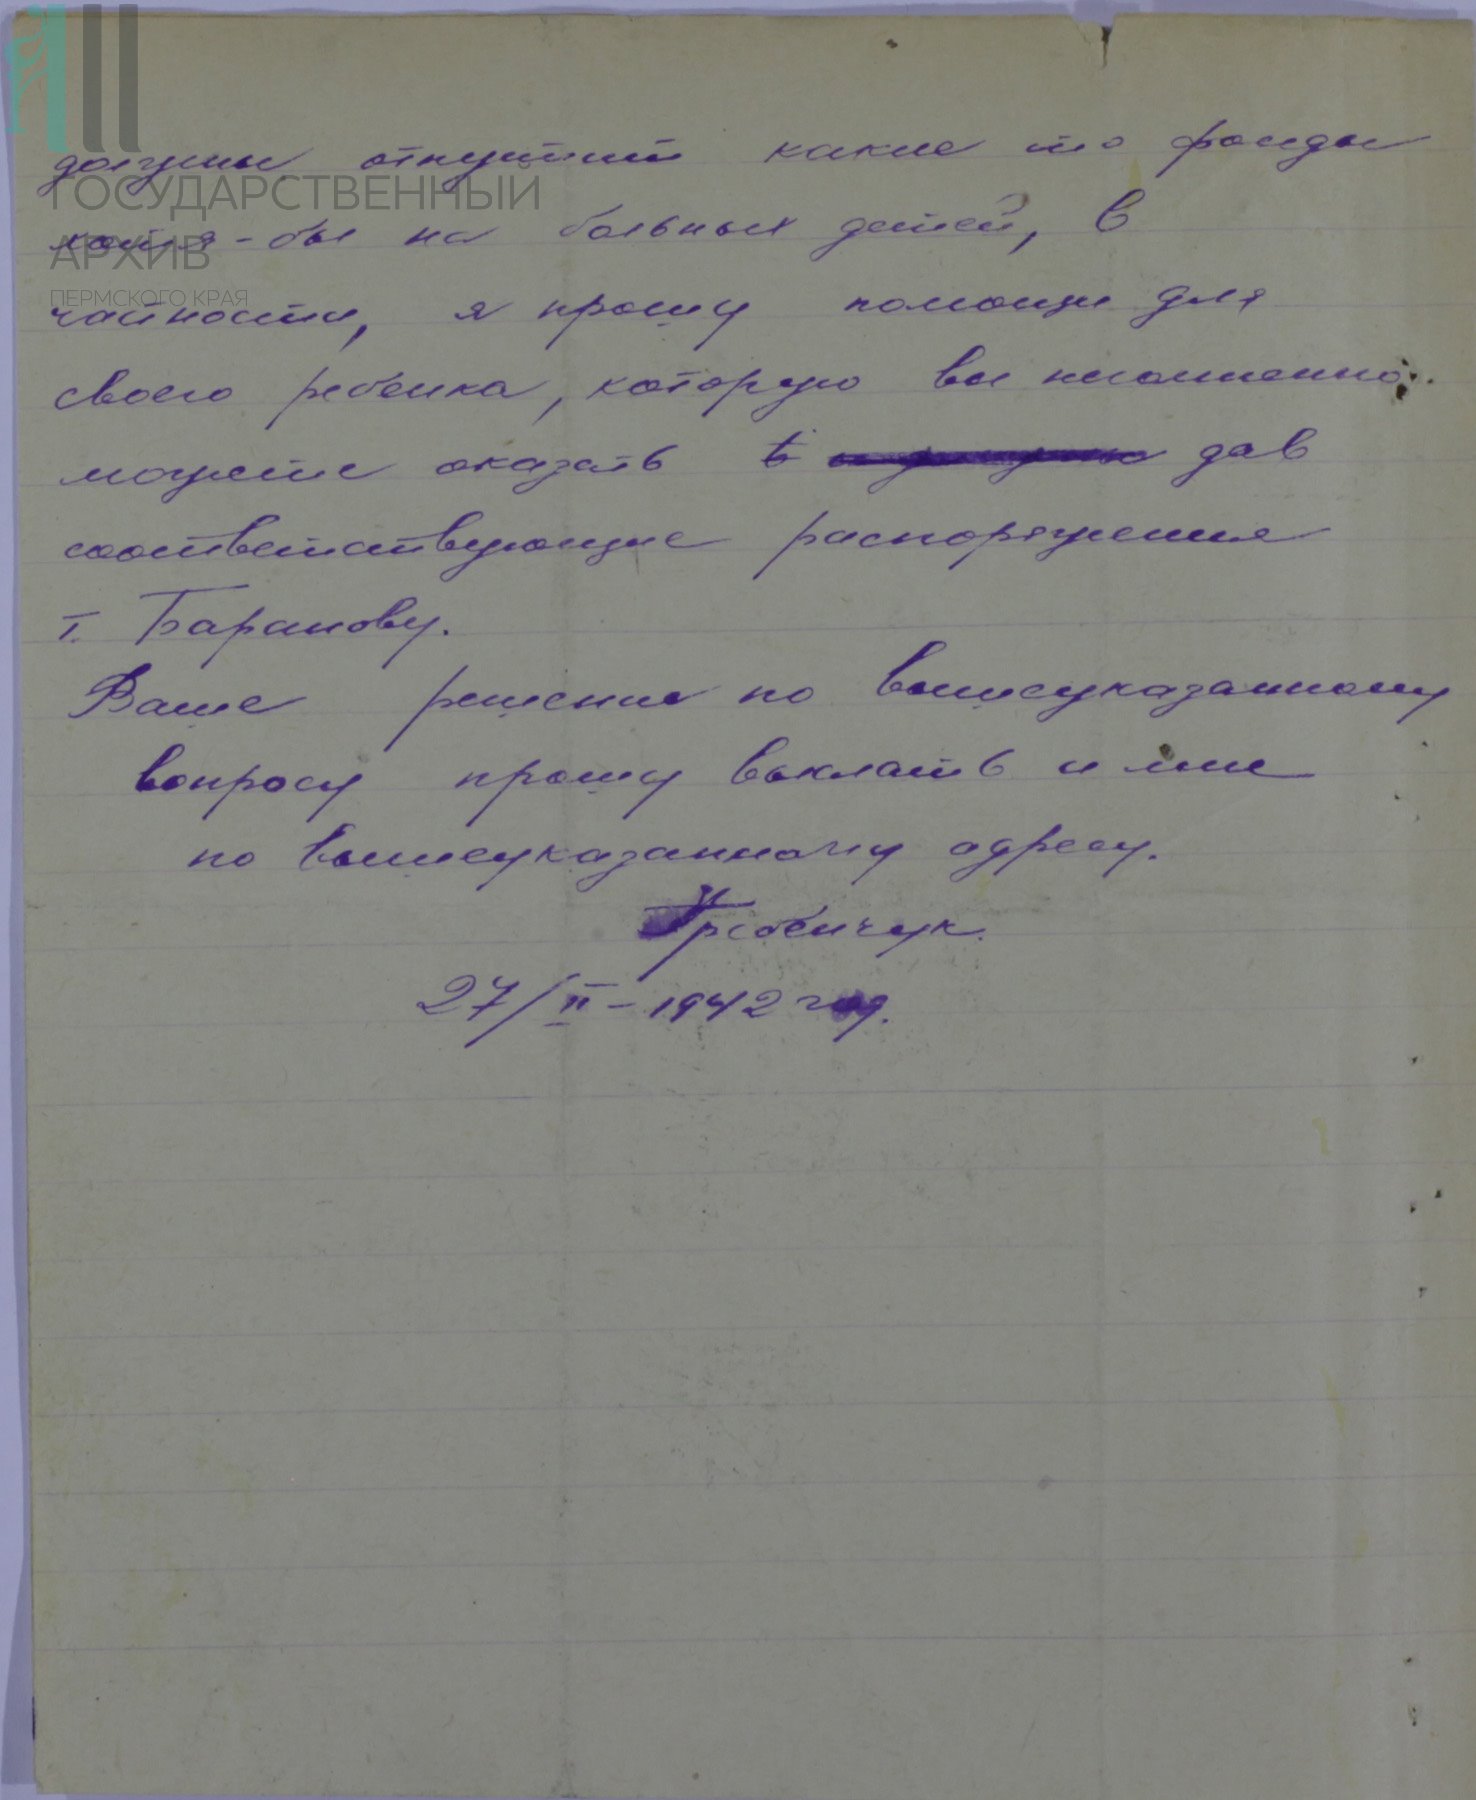 должны отпустить какие то фонды
ГОСУДАРСТВЕННЫЙ
хотя-бы на больных детей, в
АРХИВ
ПЕРМСКОГО КРАЯ
частности, я прошу помощи для
своего ребенка, которую вы несомненно
можете оказать дав
соответствующие распоряжения
т. Баранову.
Ваше решение по вышеуказанному
вопросу прошу выслать и мне
по вышеуказанному адресу.
Гребенчук.
27/II-1942 год.